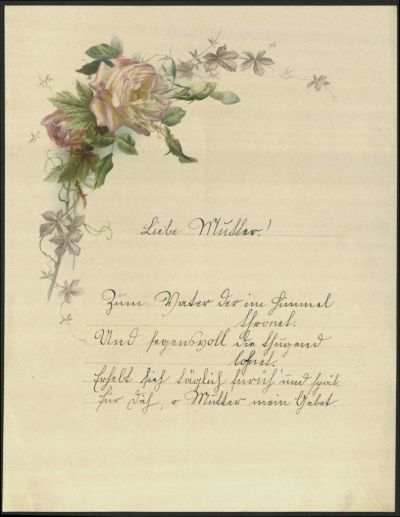 Liebe Mutter!
Zum Vater der im Himmel
thronet.
Und segensvoll die Thugend
lohnet.
Erhebt sich täglich früh und spät
für dich, o Mutter mein Gebet